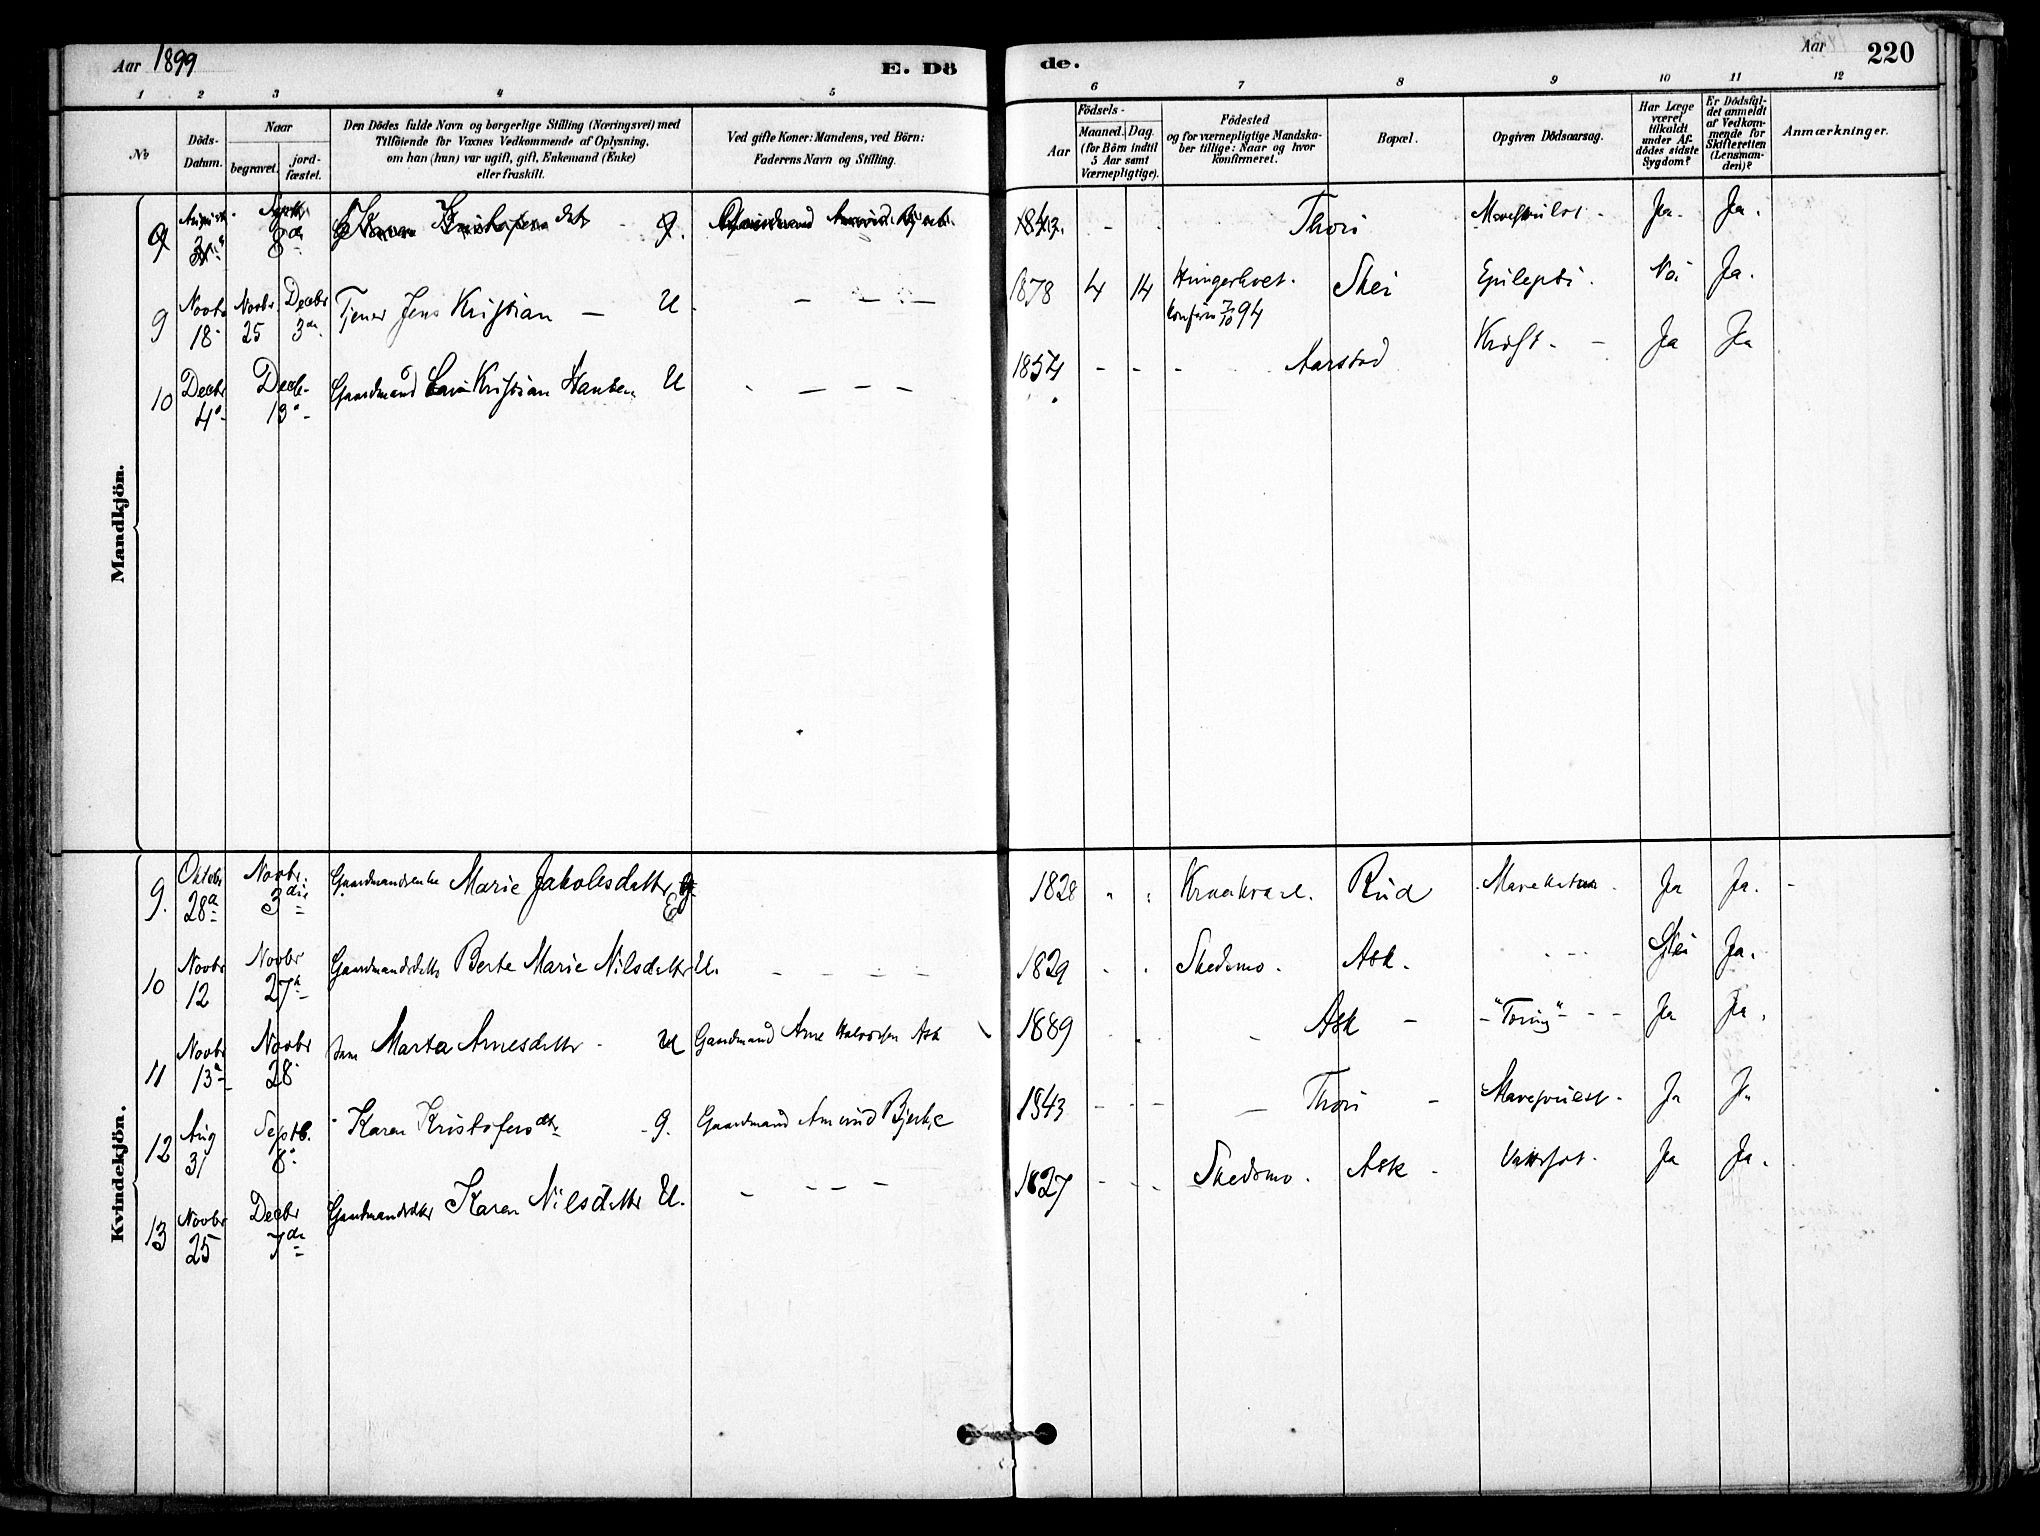 Aar 1899
E. Dö
de.
Aar
220
1 2 3 4 5 6 7 8 9 10 11 12
No
Döds-
Datum.
Naar
begravet.
jord-
fæstet.
Den Dödes fulde Navn og borgerlige Stilling (Næringsvei) med
Tilföiende for Voxnes Vedkommende af Oplysning,
om han (hun) var ugift, gift, Enkemand (Enke)
eller fraskilt.
Ved gifte Koner: Mandens, ved Börn:
Faderens Navn og Stilling.
Födsels-
Aar
Maaned. Dag.
(for Börn indtil
5 Aar samt
Værnepligtige).
Födested
og for værnepligtige Mandska-
ber tillige: Naar og hvor
konfirmeret.
Bopæl.
Opgiven Dödsaarsag.
Har Læge
været
tilkaldt
under Af-
dödes sidste
Sygdom?
Er Dödsfal-
det anmeldt
af Vedkom-
mende for
Skifteretten
(Lensman-
den)?
Anmærkninger.
Mandkjön.
9 August 31 Septbr 8de Karen Kristofersdtr g. Gaardmand Amund Bjerke 1843. Thori Ja. Ja.
9 Novbr 18 Novbr 25 Decbr 3de Tjener Jens Kristian — U. — — — 1878 4 14 Skei Epilepsi. Nei Ja.
Konfirm 7/10 94
10 Decbr 4 Decb. 13 Gaardmand Kristian Hansen U — — — 1854 Aarstad Kræft. Ja Ja
Kvindekjön.
9. Oktobr 28 Novbr. 3die Gaardmandsenke Marie Jakobsdatter E 1828 Rud Ja Ja.
10 Novbr 12 Novbr 27 Gaardmandsdtr Berte Marie Nilsdatter U. — — — — 1829 Skedsmo. Ask. Nei Ja.
11 Novbr 13 Novbr 28 Marta Arnesdatter U Gaardmand Arne Halvorsen Ask 1889 Ask — Tæring — Ja Ja.
12 Aug 31 Septb. 8 Karen Kristofersdtr g. Gaardmand Amund Bjerke 1843 Thori — Ja Ja
13 Novbr 25 Decbr 7de Gaardmandsdtr Karen Nilsdatter U. — — — — 1827 Skedsmo. Ask Ja Ja.